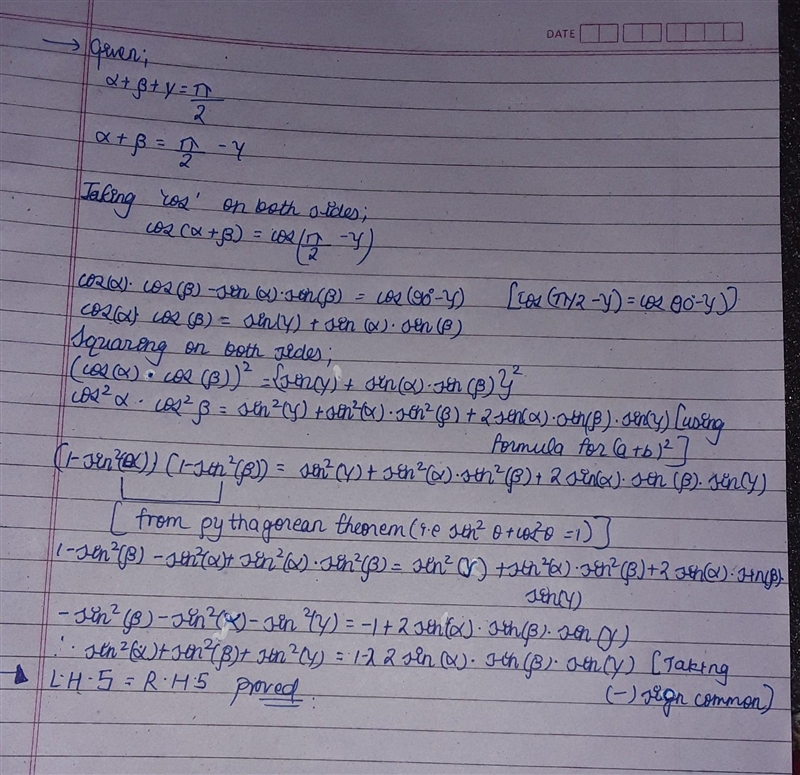 DATE
→ Given;
α+β+γ=π/2
α+β = π/2 -γ
Taking 'cos' on both sides;
cos(α+β) = cos(π/2 -γ)
cos(α)· cos(β)-sin(α)·sin(β) = cos(90°-γ) [cos(π/2-γ)=cos 90°-γ)]
cos(α)· cos(β) = sin(γ)+sin(α)·sin(β)
Squaring on both sides;
(cos(α)·cos(β))² ={sin(γ)+ sin(α)·sin(β)}²
cos²α · cos²β = sin²(γ)+sin²(α)·sin²(β)+2sin(α)·sin(β)·sin(γ) [using
formula for (a+b)²]
(1-sin²(α)) (1-sin²(β)) = sin²(γ)+sin²(α)·sin²(β)+2 sin(α)·sin(β)·sin(γ)
[from pythagorean theorem (i.e sin²θ+cos²θ=1)]
1-sin²(β)-sin²(α)+sin²(α)·sin²(β)= sin²(γ)+sin²(α)·sin²(β)+2 sin(α)·sin(β)·
sin(γ)
-sin²(β)-sin²(α)-sin²(γ)=-1+2sin(α)·sin(β)·sin(γ)
∴ sin²(α)+sin²(β)+sin²(γ)=1-2 2 sin(α)·sin(β)·sin(γ) [Taking
(-) sign common)
L·H·S = R·H·S proved.